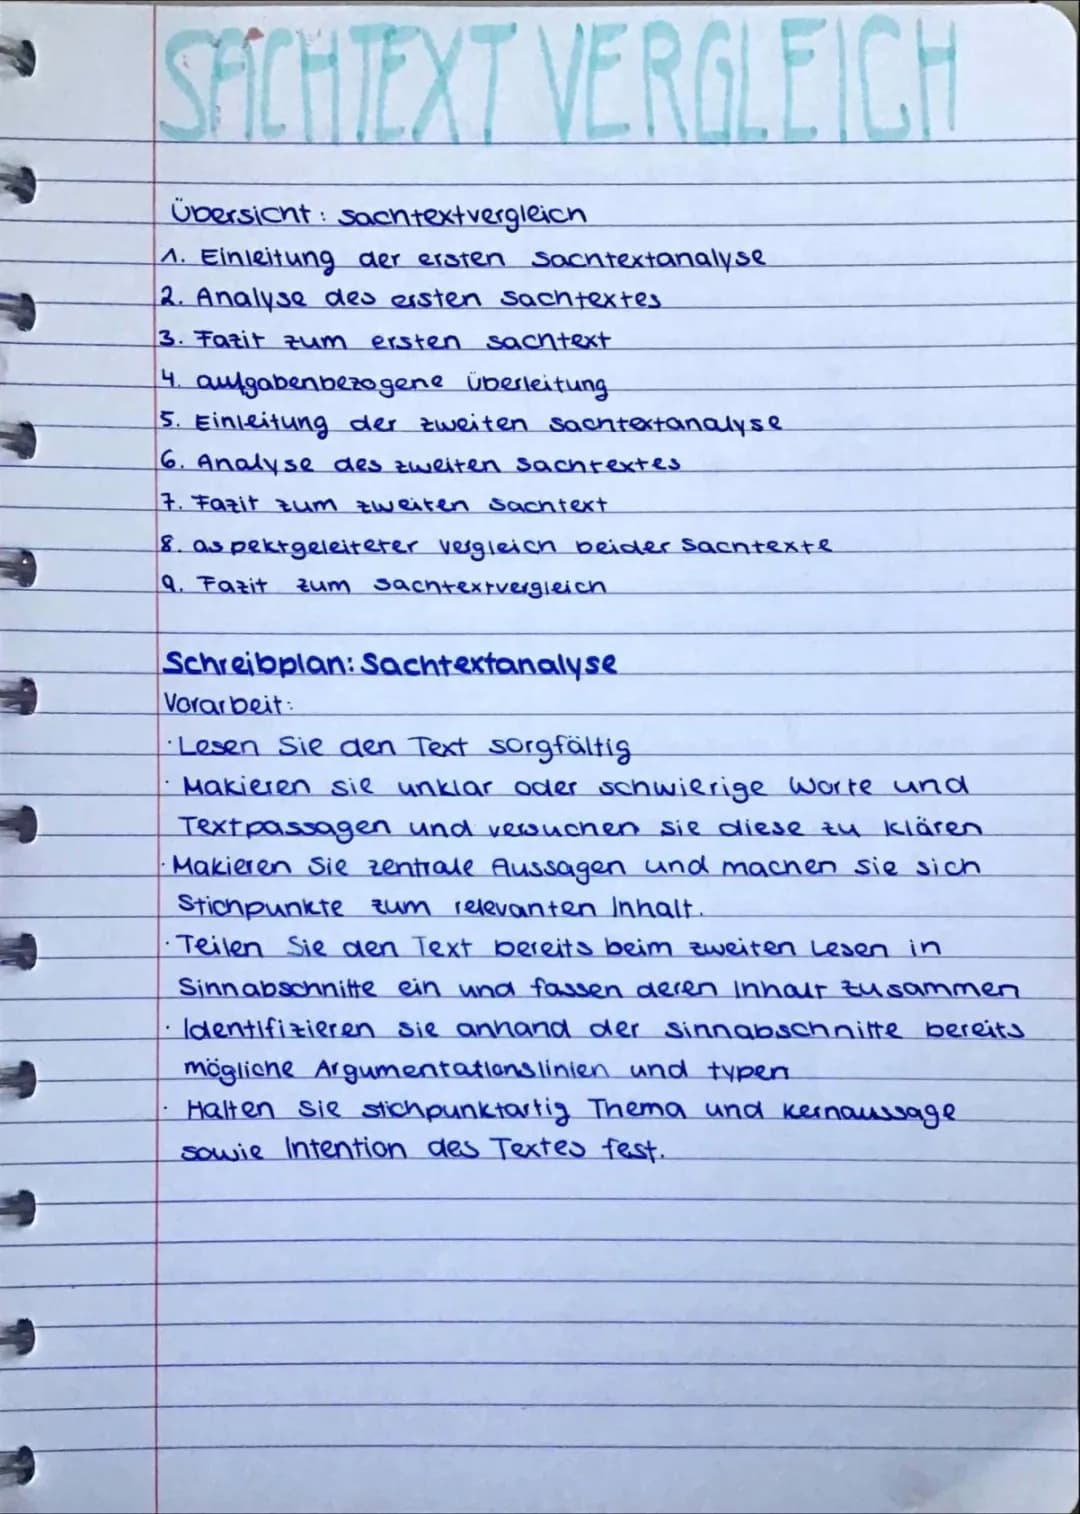 SACHTEXT VERGLEICH
Übersicht: Sachtextvergleich
1. Einleitung der ersten Sachtextanalyse
2. Analyse des ersten Sachtextes
3. Fazit zum ersten Sachtext
4. aufgabenbezogene Überleitung
5. Einleitung der zweiten Sachtextanalyse
6. Analyse des zweiten Sachtextes
7. Fazit zum zweiten Sachtext
8. aspektgeleiteter Vergleich beider Sachtexte
9. Fazit zum Sachtextvergleich
Schreibplan: Sachtextanalyse
Vorarbeit:
· Lesen Sie den Text sorgfältig
· Makieren sie unklar oder schwierige Worte und
Textpassagen und versuchen sie diese zu klären
· Makieren Sie zentrale Aussagen und machen sie sich
Stichpunkte zum relevanten Inhalt.
· Teilen Sie den Text bereits beim zweiten Lesen in
Sinnabschnitte ein und fassen deren Inhalt zusammen
· Identifizieren sie anhand der Sinnabschnitte bereits
mögliche Argumentationslinien und typen
· Halten Sie stichpunktartig Thema und Kernaussage
sowie Intention des Textes fest.